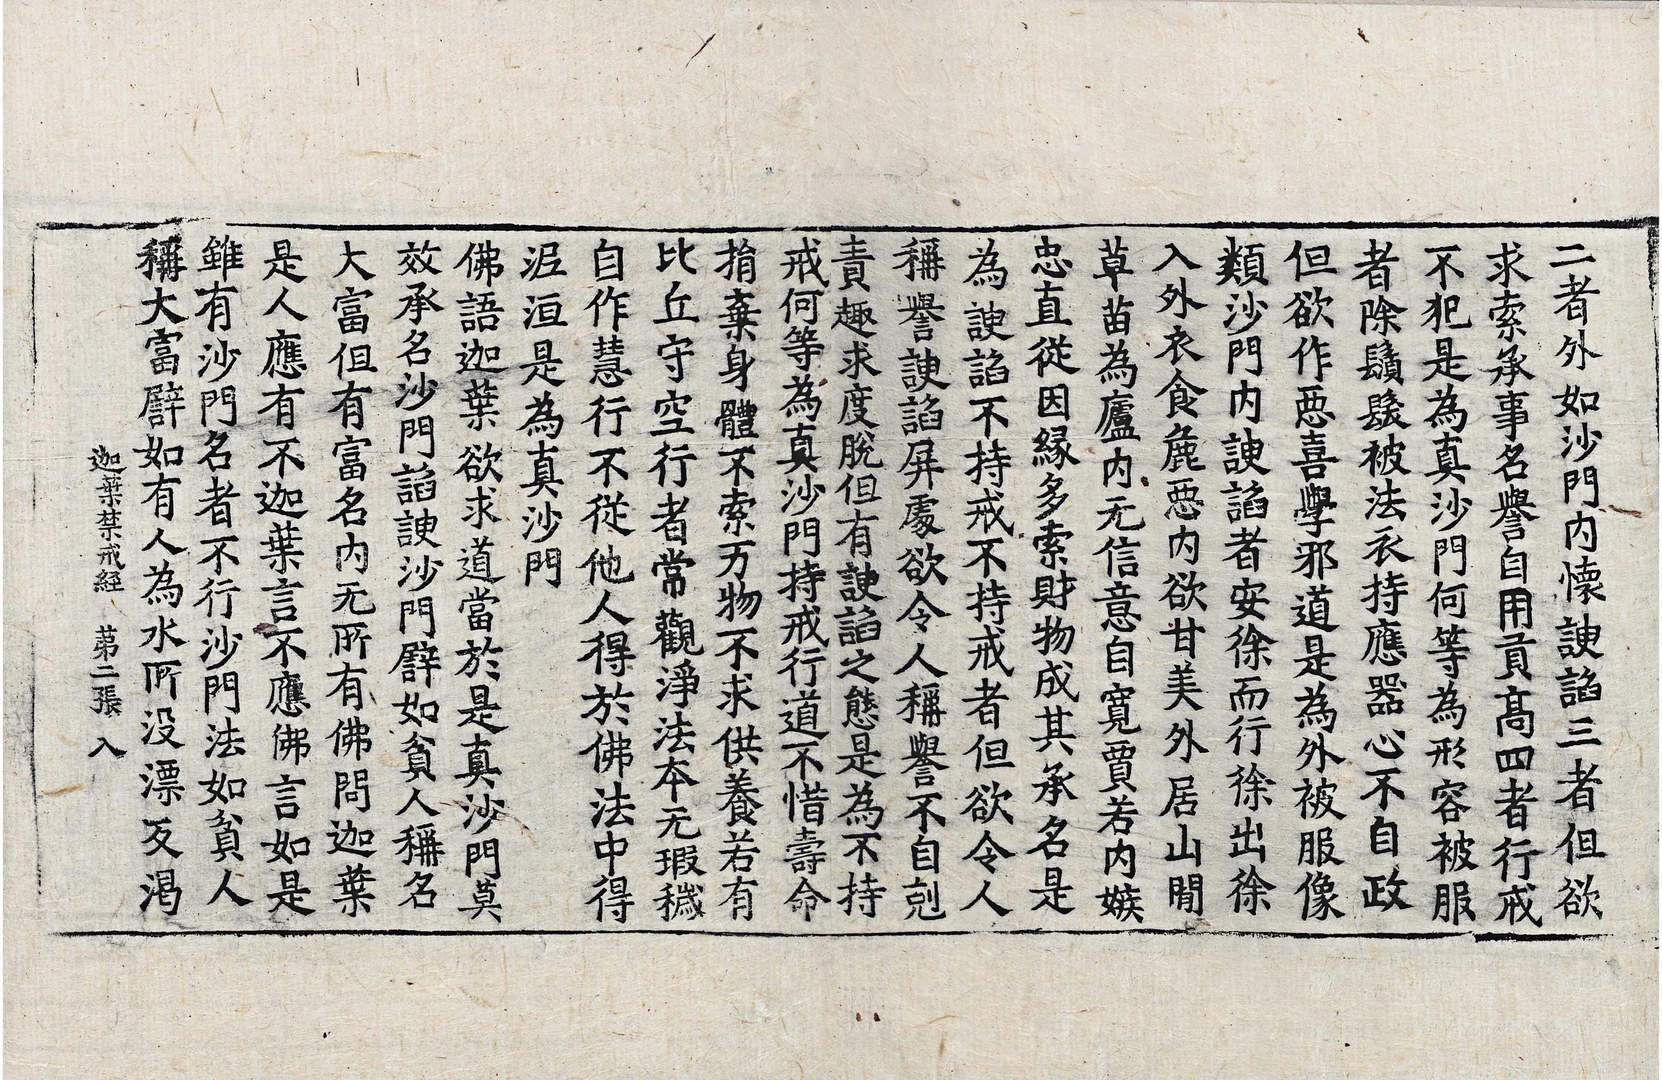 二者外如沙門內懷諛諂三者但欲
求索承事名譽自用貢高四者行戒
不犯是為真沙門何等為形容被服
者除鬚髮被法衣持應器心不自政
但欲作惡喜學邪道是為外被服像
類沙門內諛諂者安徐而行徐出徐
入外衣食麁惡內欲甘美外居山閒
草苗為廬內无信意自寬賈若內嫉
忠直從因緣多索財物成其承名是
為諛諂不持戒不持戒者但欲令人
稱譽諛諂屏處欲令人稱譽不自剋
責趣求度脫但有諛諂之態是為不持
戒何等為真沙門持戒行道不惜壽命
捐棄身體不索万物不求供養若有
比丘守空行者常觀淨法本无瑕穢
自作慧行不從他人得於佛法中得
泥洹是為真沙門
佛語迦葉欲求道當於是真沙門莫
效承名沙門諂諛沙門譬如貧人稱名
大富但有富名內无所有佛問迦葉
是人應有不迦葉言不應佛言如是
雖有沙門名者不行沙門法如貧人
稱大富譬如有人為水所没漂反渴
迦葉禁戒經 苐二張 入